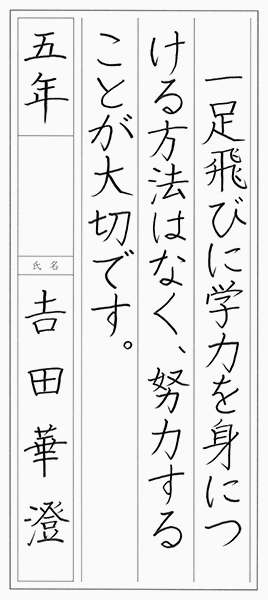 一足飛びに学力を身につ
ける方法はなく、努力する
ことが大切です。
五年
氏名
吉田華澄